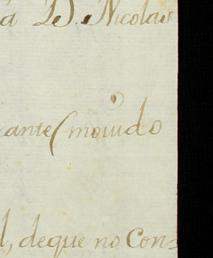 á D. Nicolas
ante (movido
l, deque no Con=